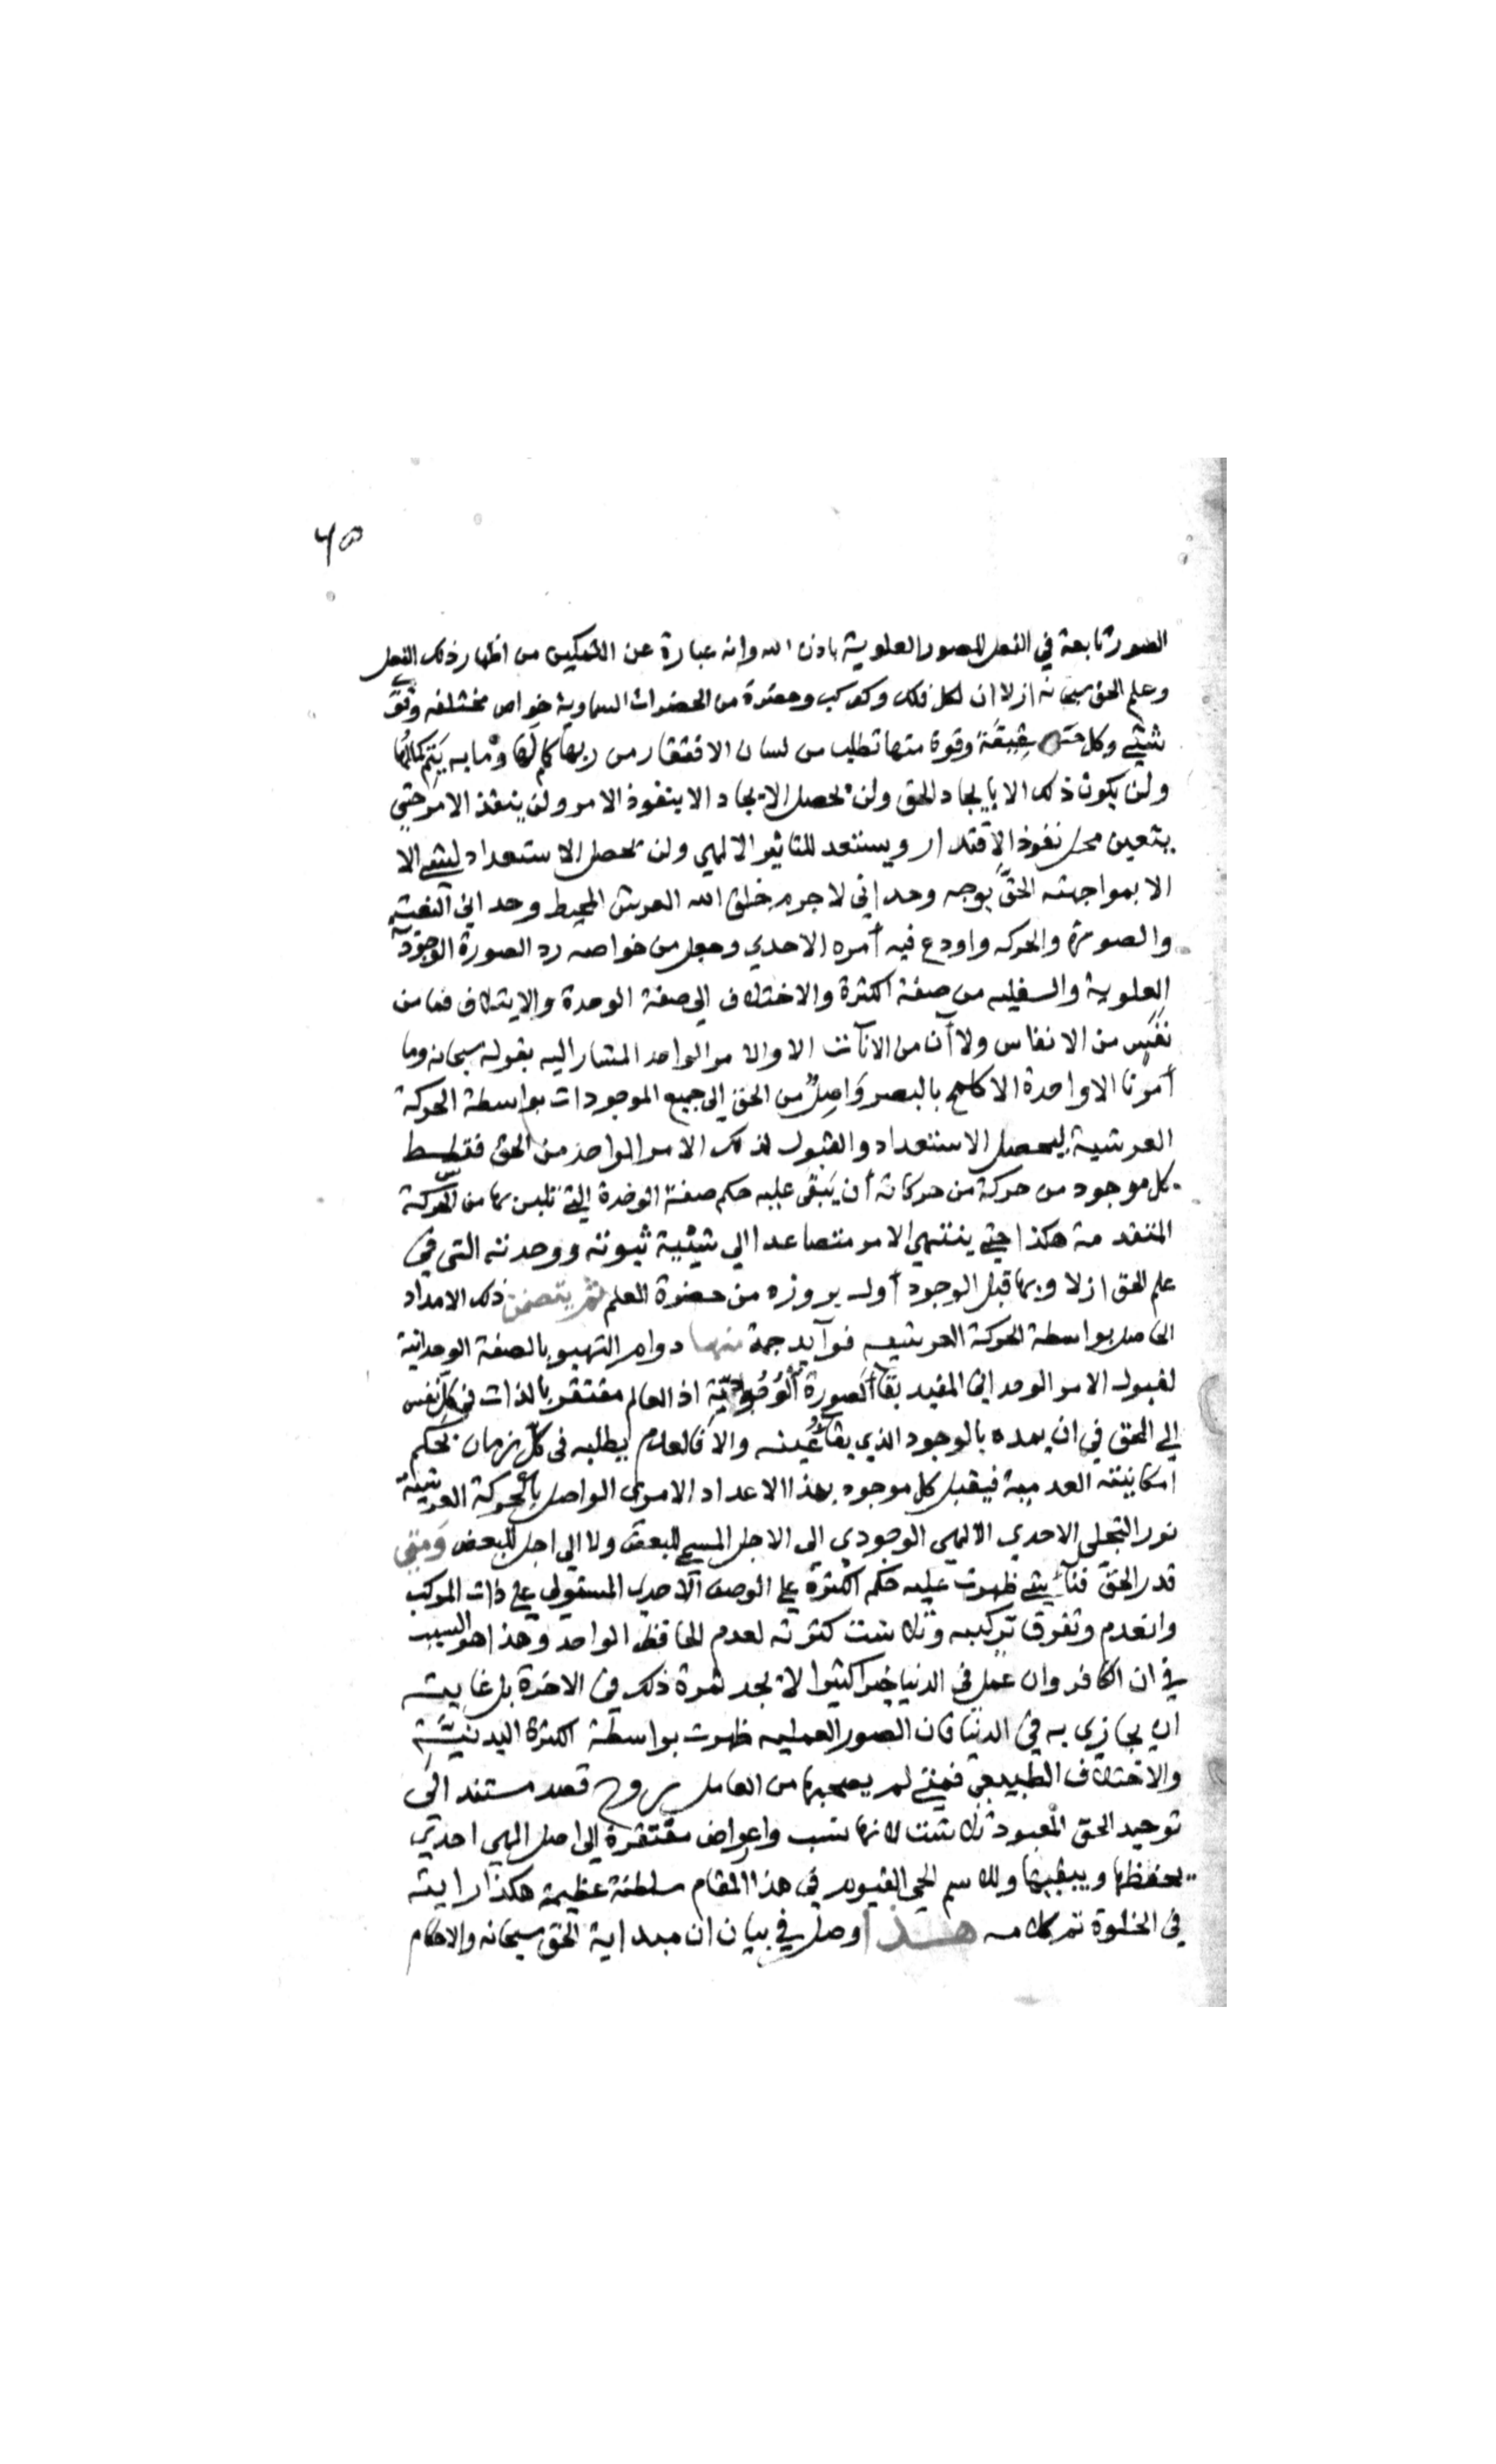 ٤٥
الصور تابعة في الفعل للصور العلوية باذن الله وانه عبارة عن التمكين من اظهار ذلك الفعل
وعلم الحق سبحانه ازلا ان لكل فلك وكوكب وحضرة من الحضرات السماوية خواص مختلفه وقوي
شتي وكل حقيقة وقوة منها تطلب من لسان الافتقار من ربها كمالها وما به يتم كمالها
ولن يكون ذلك الا بايجاد الحق ولن يحصل الايجاد الا بنفوذ الامر ولن ينفذ الامر حتي
يتعين محل نفوذ الاقتدار ويستعد للتاثير الالهي ولن يحصل الاستعداد لشي الا
الا بمواجهته الحق بوجه وحداني لا جرم خلق الله العرش المحيط وحداني النعت
والصورة والحركه واودع فيه أمره الاحدي وجعل من خواصه رد الصورة الوجودية
العلوية والسفليه من صفة الكثرة والاختلاف الي صفة الوحدة والايتلاف فما من
نفس من الانفاس ولا آن من الانآت الا والامر الواحد المشار اليه بقوله سبحانه وما
أمرنا الا واحدة الا كلمح بالبصر واصل من الحق الي جميع الموجودات بواسطة الحركة
العرشية ليحصل الاستعداد والقبول لذلك الامر الواحد من الحق فقط
كل موجود من حركة من حركاته أن يبقي عليه حكم صفة الوحدة التي تلبس بها من الحركة
المتقدمة هكذا حتي ينتهي الامر متصاعدا الي شيئية ثبوته ووحدته التي في
علم الحق ازلا وبها قبل الوجود أول بروزه من حضرة العلم ثم يتضمن ذلك الامداد
الحاصل بواسطة الحركة العرشيه فوآيد جمة منها دوام التهيو بالصفة الوحدانية
لقبول الامر الوحداني المفيد بقآ الصورة الوجودية اذ العالم مفتقر بالذات في كل نفس
الي الحق في ان يمده بالوجود الذي به بقآ عينه والا فالعدم يطلبه في كل زمان بحكم
امكانيته العدمية فيقبل كل موجود بهذا الاعداد الامري الواصل بالحركة العرشية
نور التجلي الاحدي الالهي الوجودي الي الاجل المسمي للبعض ولا الي اجل للبعض ومتي
قدر الحق فنآء شي ظهرت عليه حكم الكثرة علي الوصف الاحدي المستولي علي ذات المركب
وانعدم وتفرق تركيبه وتلاشت كثرته لعدم الحافظ الواحد وهذا هو السبب
في ان الكافر وان عمل في الدنيا خيرا كثيرا لا يجد ثمرة ذلك في الاخرة بل غايته
ان يجازي به في الدنيا فان الصور العمليه ظهرت بواسطة الكثرة البدنية
والاختلاف الطبيعي فمتي لم يصحبها من العامل روح قصد مستند الي
توحيد الحق المعبود تلاشت لانها نسب واعراض مفتقرة الي اصل الهي احدي
يحفظها ويبقيها وللاسم الحي القيوم في هذا المقام سلطنة عظيمة هكذا رايته
في الخلوة تم كلامه هذا وصل في بيان ان مبداية الحق سبحانه والاحكام